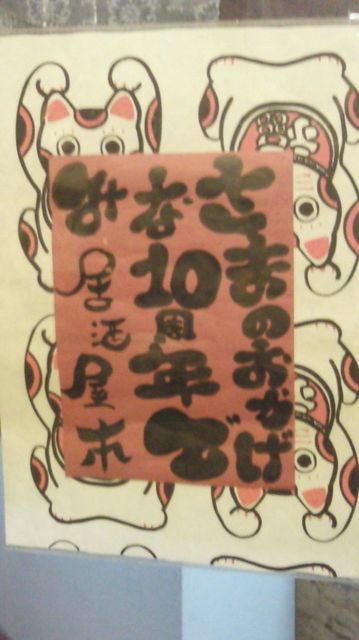 みなさまのおかげで
10周年
居酒屋